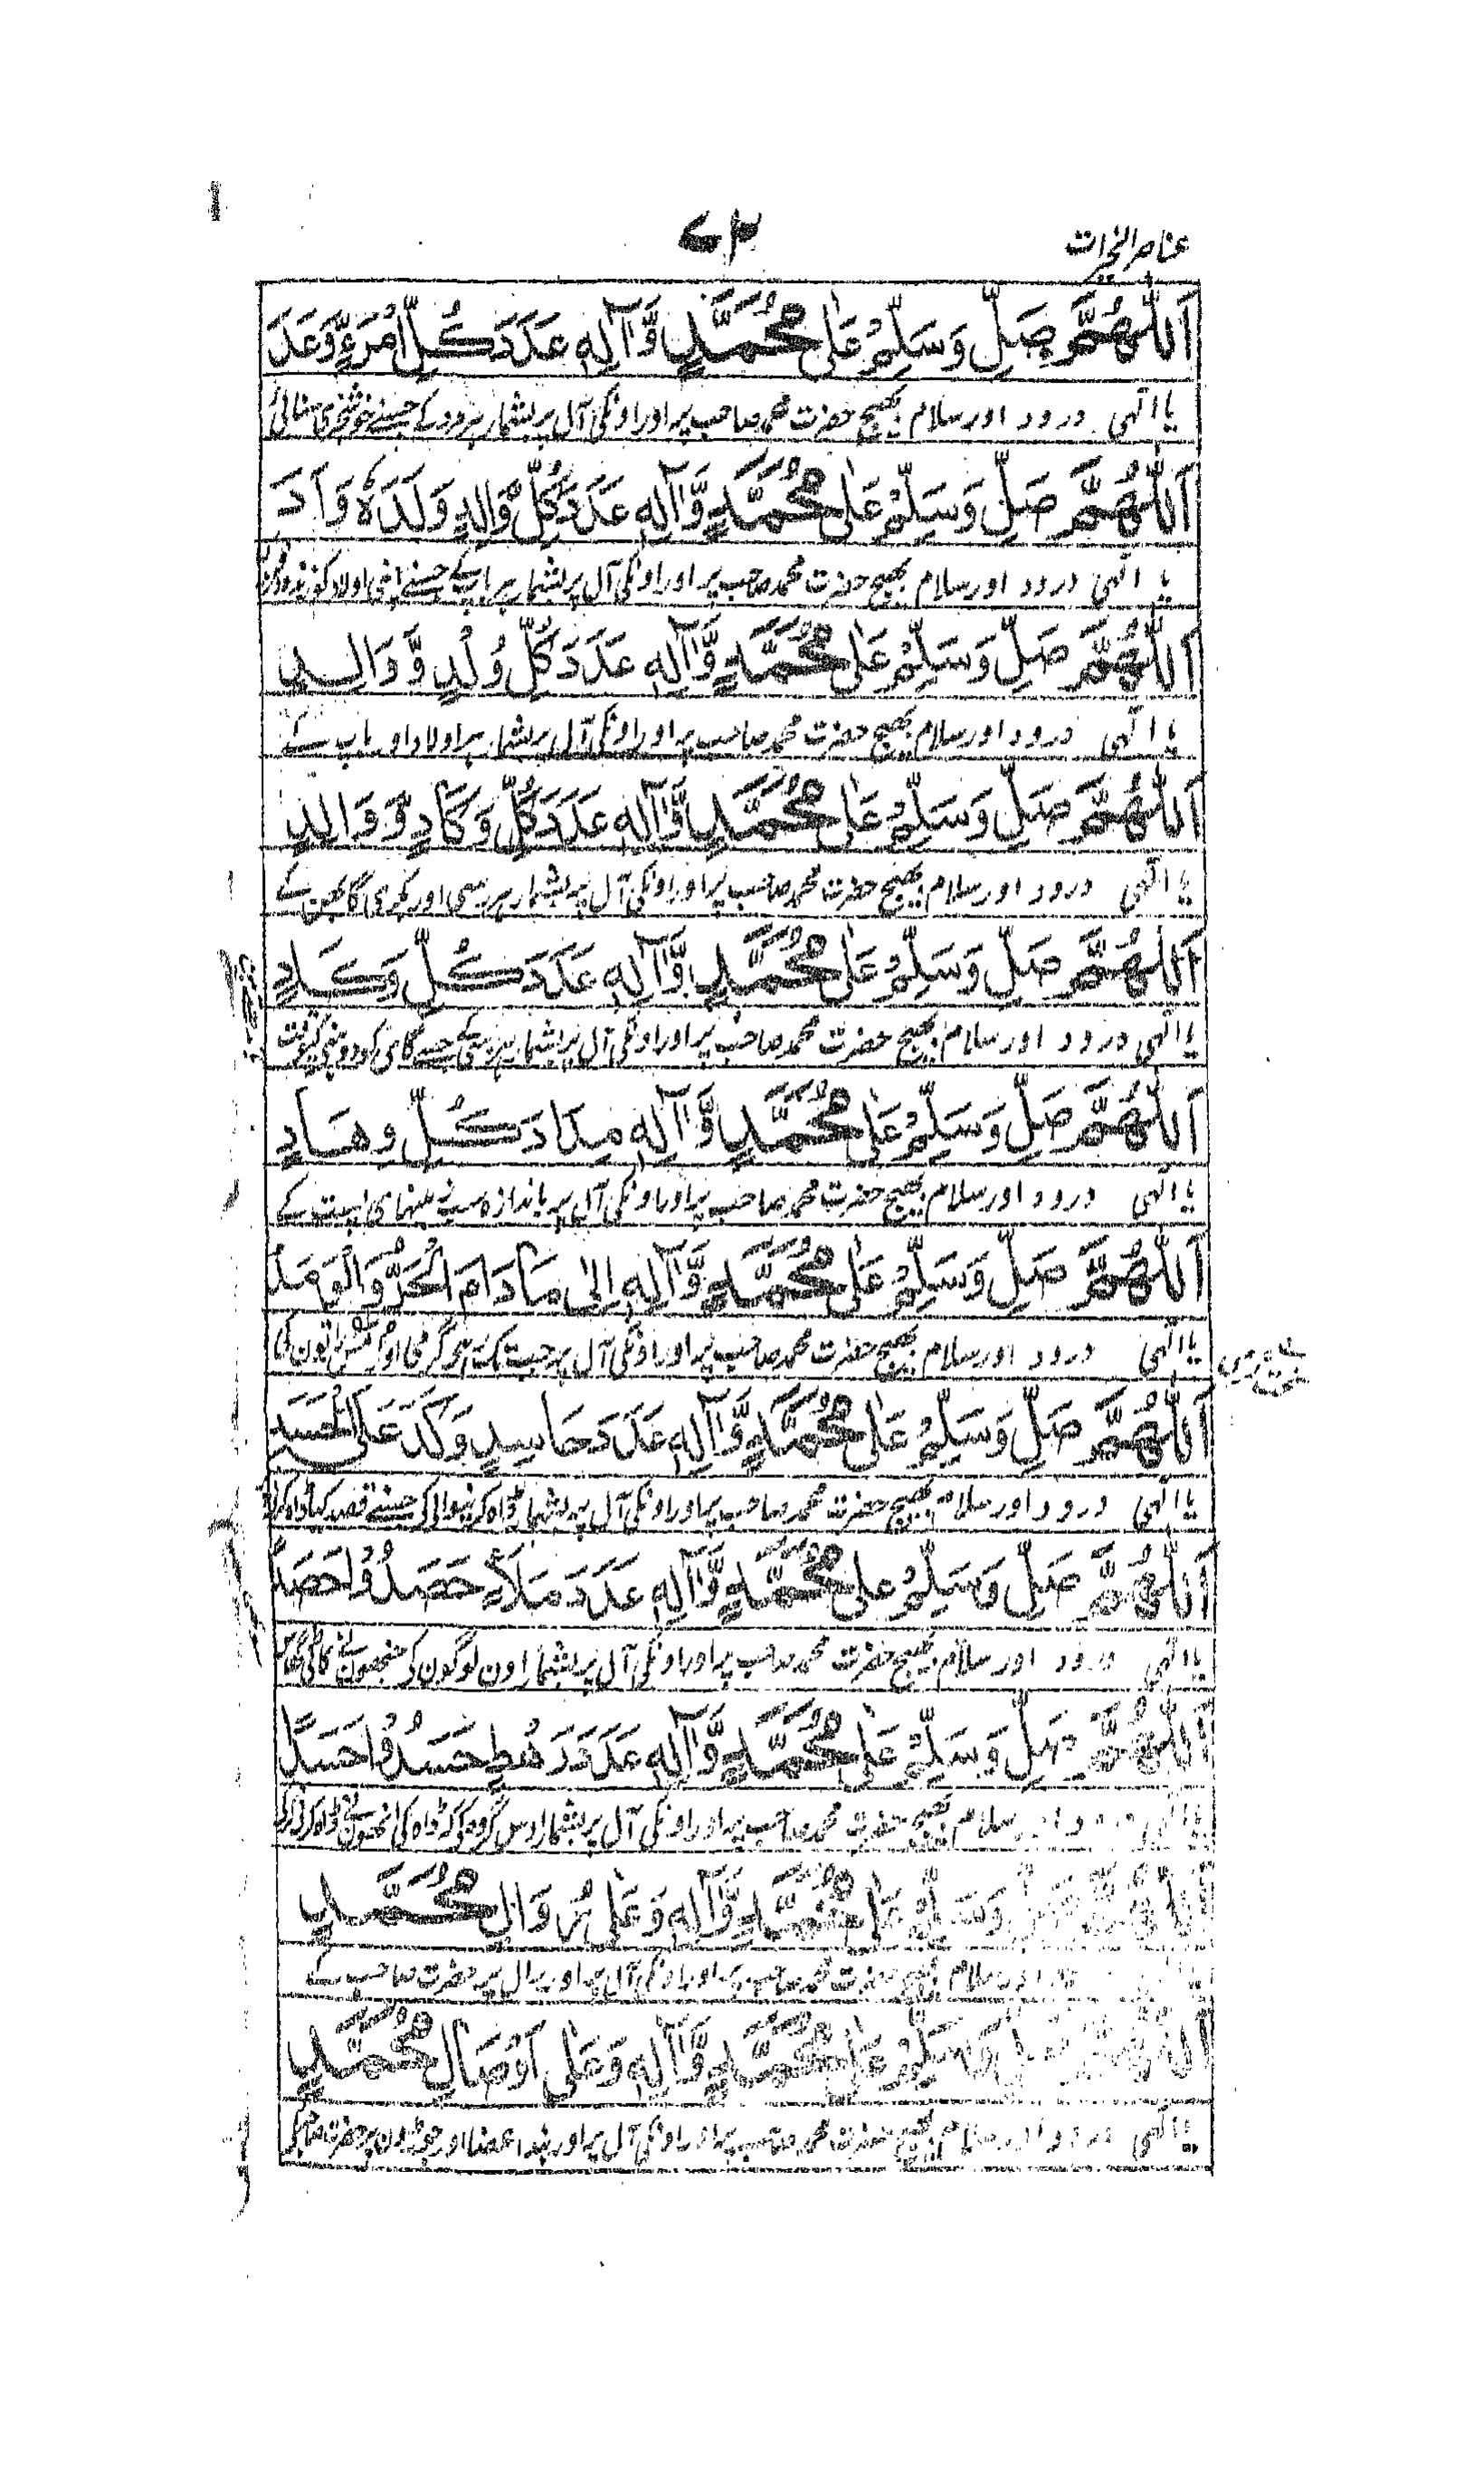 عناصر الخیرات
۷۲
اَللّٰهُمَّ صَلِّ وَسَلِّمْ عَلٰى مُحَمَّدٍ وَّآلِهٖ عَدَدَ كُلِّ امْرَءٍ وَّعَدَ
یا الٰہی درود اور سلام بھیج حضرت محمد صاحب پر اور اونکی آل پر بشمار ہر مرد کے جسنے خوشخبری سنائی
اَللّٰهُمَّ صَلِّ وَسَلِّمْ عَلٰى مُحَمَّدٍ وَّآلِهٖ عَدَدَ كُلِّ وَّالِدٍ وَلَدَهٗ وَآدَ
یا الٰہی درود اور سلام بھیج حضرت محمد صاحب پر اور اونکی آل پر بشمار ہر باپ کے جسنے اپنی اولاد کو زندہ درگور
اَللّٰهُمَّ صَلِّ وَسَلِّمْ عَلٰى مُحَمَّدٍ وَّآلِهٖ عَدَدَ كُلِّ وُلْدٍ وَّ وَالِدٍ
یا الٰہی درود اور سلام بھیج حضرت محمد صاحب پر اور اونکی آل پر بشمار ہر اولاد اور باپ کے
اَللّٰهُمَّ صَلِّ وَسَلِّمْ عَلٰى مُحَمَّدٍ وَّآلِهٖ عَدَدَ كُلِّ وَكَادٍ وَّ وَالِدٍ
یا الٰہی درود اور سلام بھیج حضرت محمد صاحب پر اور اونکی آل پر بشمار ہر رسی اور بکری گابھن کے
اَللّٰهُمَّ صَلِّ وَسَلِّمْ عَلٰى مُحَمَّدٍ وَّآلِهٖ عَدَدَ كُلِّ وَكَادٍ
یا الٰہی درود اور سلام بھیج حضرت محمد صاحب پر اور اونکی آل پر بشمار ہر رسی کے جسے گای کو دوہنی کیوقت
اَللّٰهُمَّ صَلِّ وَسَلِّمْ عَلٰى مُحَمَّدٍ وَّآلِهٖ مِدَادَ كُلِّ وِهَادٍ
یا الٰہی درود اور سلام بھیج حضرت محمد صاحب پر اور اونکی آل پر باندازہ سب زمینهای پست کے
اَللّٰهُمَّ صَلِّ وَسَلِّمْ عَلٰى مُحَمَّدٍ وَّآلِهٖ اِلٰى مَا دَامَ الْحَرُّ وَالْوَمَدُ
یا الٰہی درود اور سلام بھیج حضرت محمد صاحب پر اور اونکی آل پر جب تک ہو گرمی اور راتون کی
اَللّٰهُمَّ صَلِّ وَسَلِّمْ عَلٰى مُحَمَّدٍ وَّآلِهٖ عَدَدَ حَاسِدٍ وَكَدَ عَلَى الْحَسَدِ
یا الٰہی درود اور سلام بھیج حضرت محمد صاحب پر اور اونکی آل پر بشمار ڈاہ کرنیوالی کی جسنے قصد کیا ڈاہ کرنے
اَللّٰهُمَّ صَلِّ وَسَلِّمْ عَلٰى مُحَمَّدٍ وَّآلِهٖ عَدَدَ مَلَاءٍ حَصَدُوْا حَصَدًا
یا الٰہی درود اور سلام بھیج حضرت محمد صاحب پر اور اونکی آل پر بشمار اون لوگون کی جنہون نے کاٹی گھاس
اَللّٰهُمَّ صَلِّ وَسَلِّمْ عَلٰى مُحَمَّدٍ وَّآلِهٖ عَدَدَ رَهْطٍ حَسَدُوْا حَسَدًا
یا الٰہی درود اور سلام بھیج حضرت محمد صاحب پر اور اونکی آل پر بشمار اوس گروہ کی کہ ڈاہ کی انہون نے ڈاہ کرنی کر
اَللّٰهُمَّ صَلِّ وَسَلِّمْ عَلٰى مُحَمَّدٍ وَّآلِهٖ وَعَلٰى وَالِ مُحَمَّدٍ
اور سلام بھیج حضرت محمد صاحب پر اور اونکی آل پر اور پر حضرت صاحب کے
اَللّٰهُمَّ صَلِّ وَسَلِّمْ عَلٰى مُحَمَّدٍ وَّآلِهٖ وَعَلٰى اَوْصَالِ مُحَمَّدٍ
یا الٰہی درود اور سلام بھیج حضرت محمد صاحب پر اور اونکی آل پر اور اعضا اور جوڑون پر حضرت صاحب کی